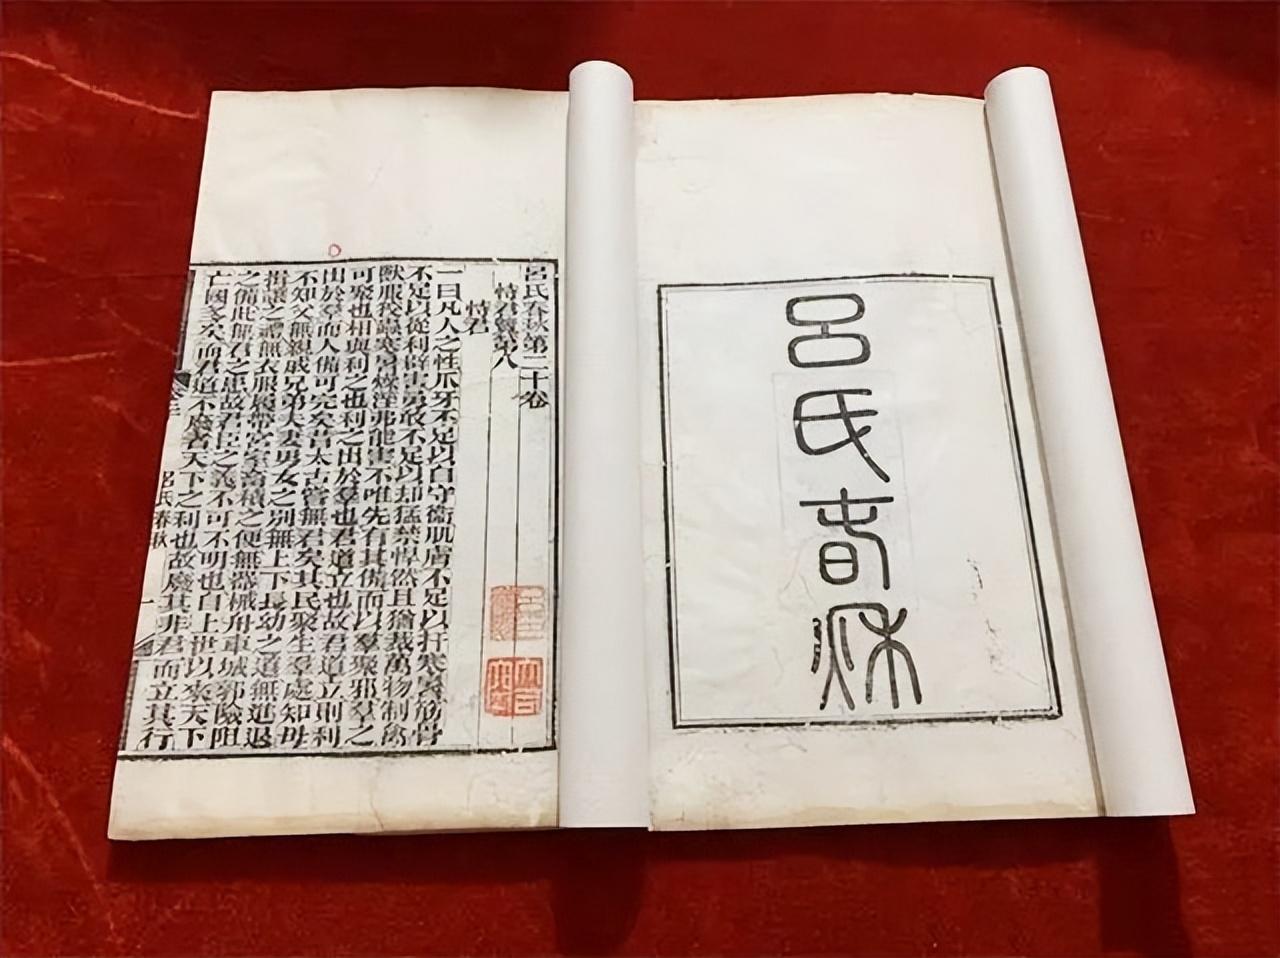 呂氏春秋
呂氏春秋第二十卷
恃君覽第八
恃君
一曰凡人之性爪牙不足以自守衞肌膚不足以扞寒暑筋骨
不足以從利辟害勇敢不足以却猛禁悍然且猶裁萬物制禽
獸服狡蟲寒暑燥溼弗能害不唯先有其備而以羣聚邪羣之
可聚也相與利之也利之出於羣也君道立也故君道立則利
出於羣而人備可完矣昔太古嘗無君矣其民聚生羣處知母
不知父無親戚兄弟夫妻男女之別無上下長幼之道無進退
揖讓之禮無衣服履帶宮室畜積之便無器械舟車城郭險阻
之備此無君之患故君臣之義不可不明也自上世以來天下
亡國多矣而君道不廢者天下之利也故廢其非君而立其行
呂氏春秋 一